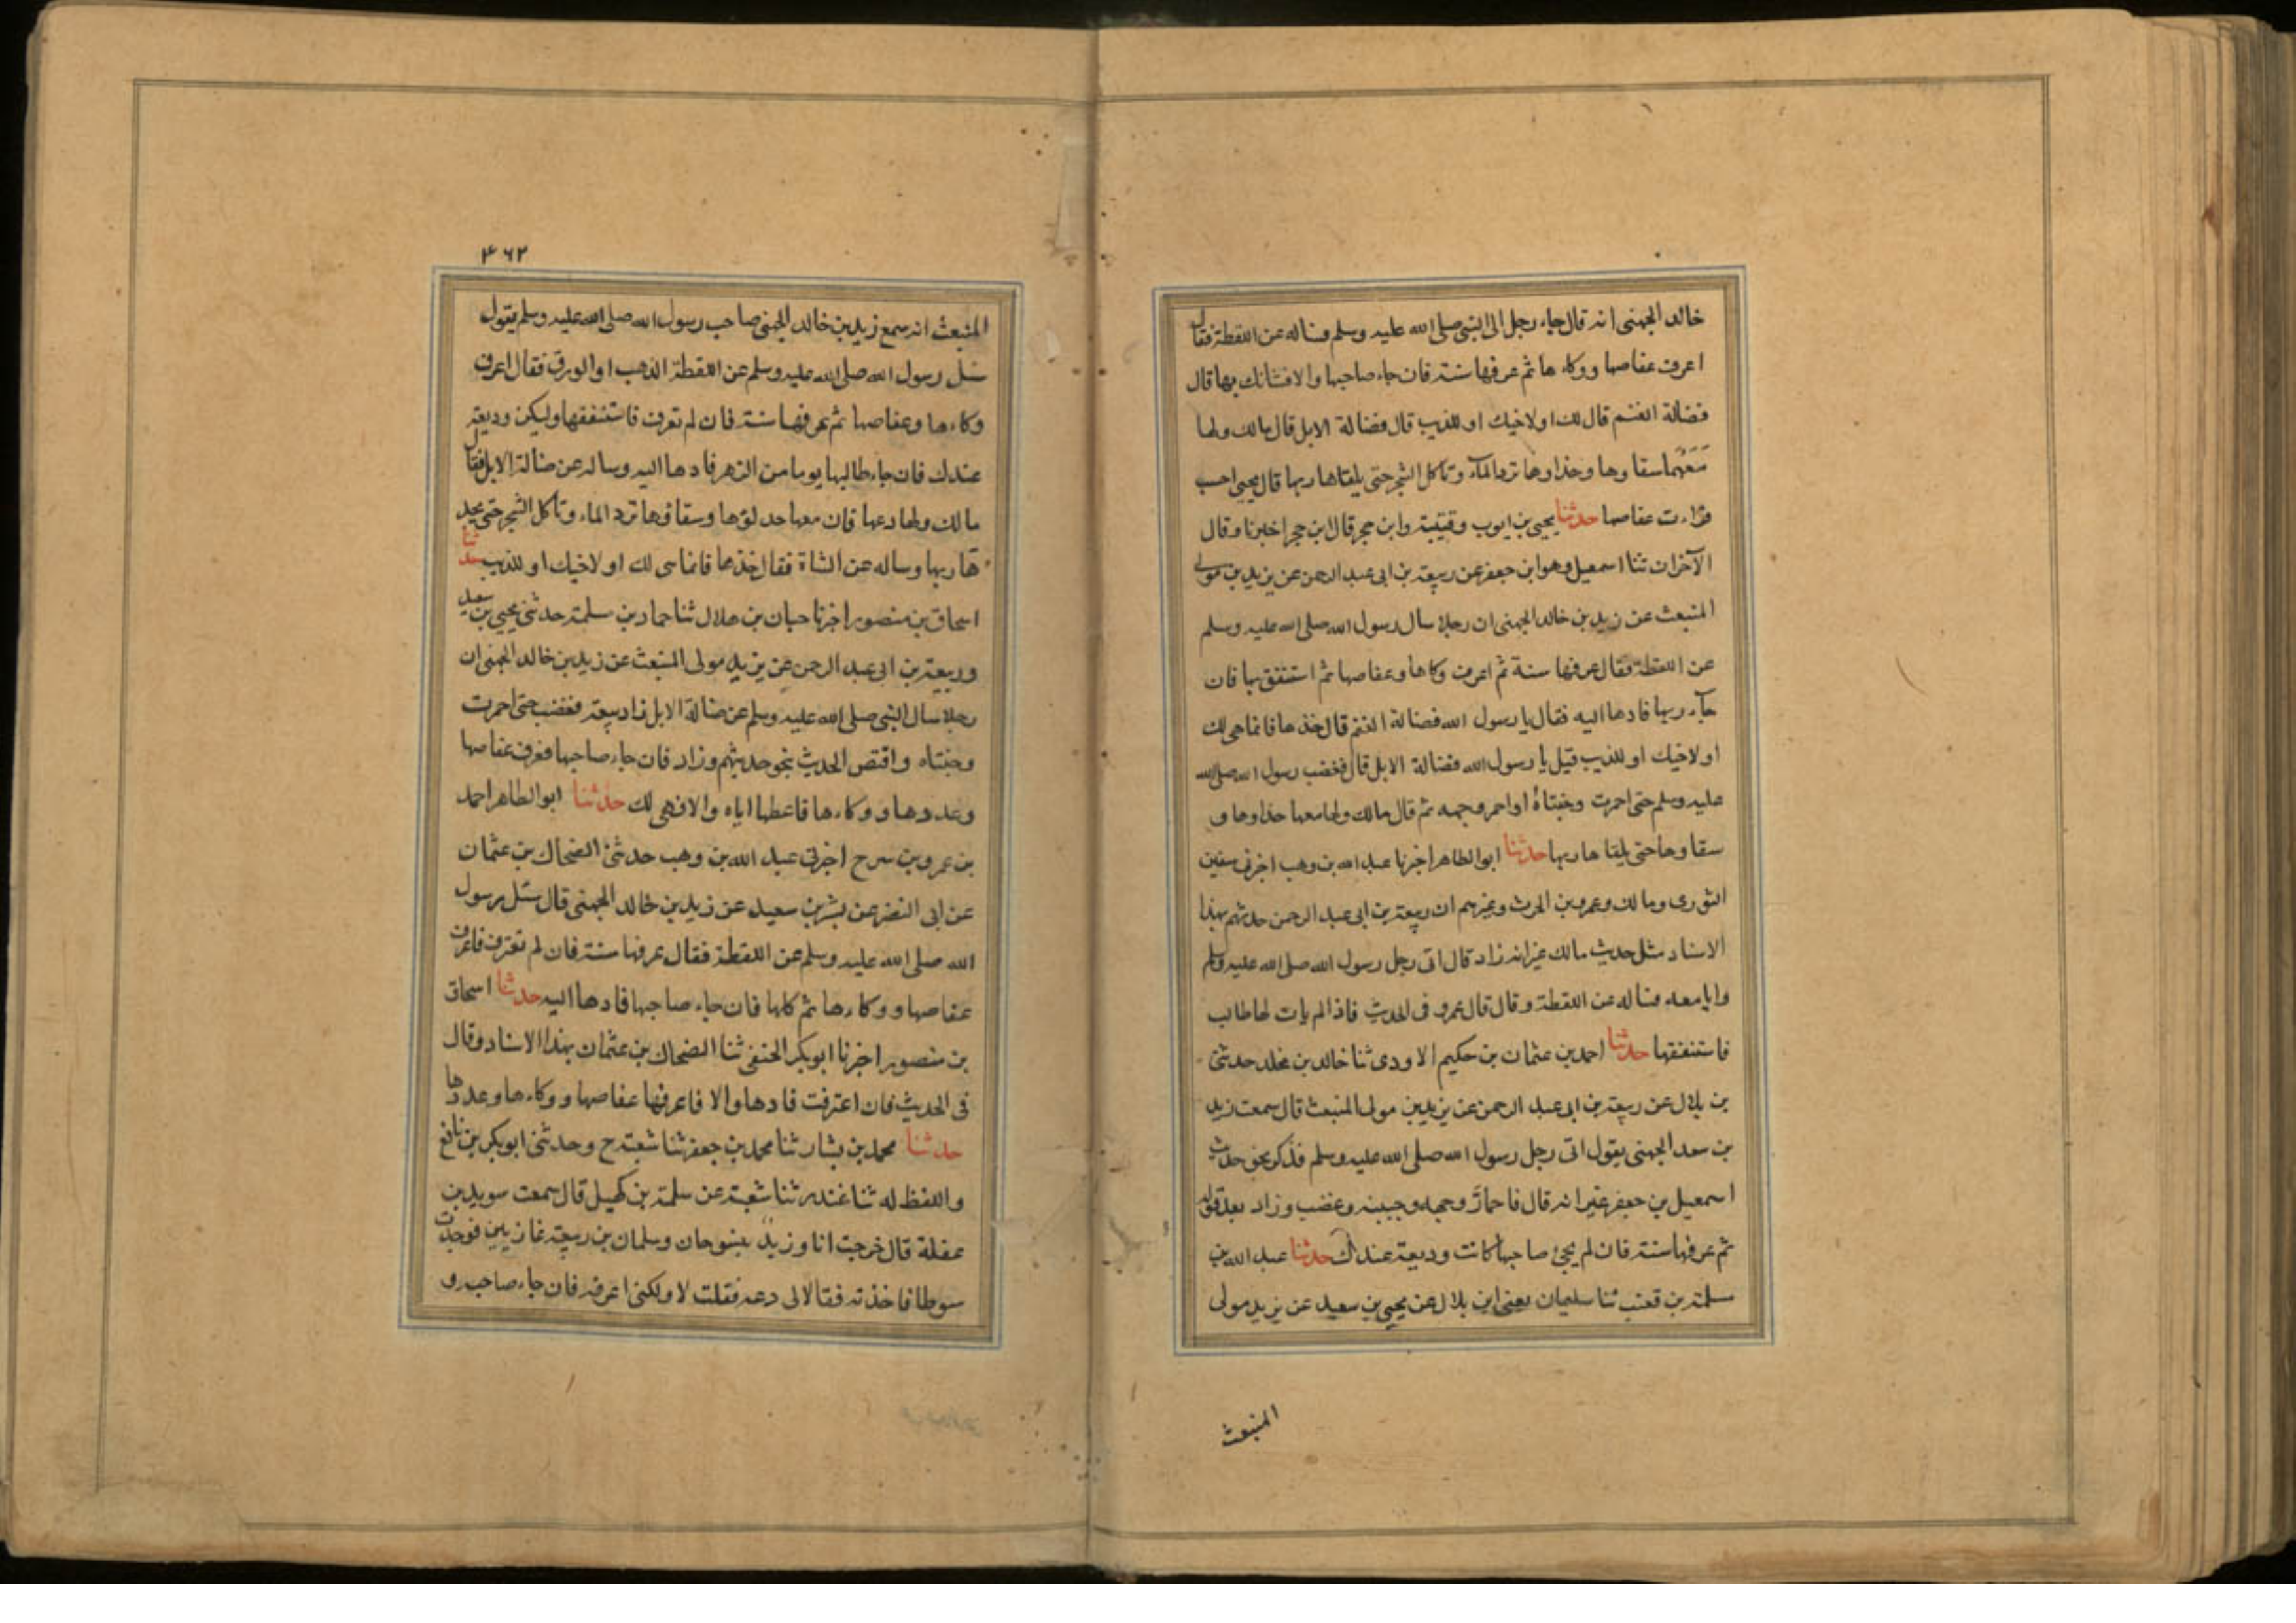 خالد الجهنى انه قال جاء رجل الى النبى صلى الله عليه وسلم فساله عن اللقطة فقال
اعرف عفاصها ووكاء ها ثم عرفها سنة فان جاء صاحبها والا فشانك بها قال
فضالة الغنم قال لك او لاخيك او للذيب قال فضالة الابل قال مالك ولها
معهما سقاوها وحذاوها ترد الماء وتاكل الشجر حتى يلقاها ربها قال يحيى احسب
قراءت عفاصها حدثنا يحيى بن ايوب وقتيبة وابن حجر قال ابن حجر اخبرنا وقال
الآخران ثنا اسمعيل وهو ابن جعفر عن ربيعة بن ابى عبد الرحمن عن يزيد بن مولى
المنبعث عن زيد بن خالد الجهنى ان رجلا سال رسول الله صلى الله عليه وسلم
عن اللقطة فقال عرفها سنة ثم اعرف وكاها وعفاصها ثم استنفق بها فان
جاء ربها فادها اليه فقال يا رسول الله فضالة الغنم قال خذها فانما هى لك
او لاخيك او للذيب قيل يا رسول الله فضالة الابل قال فغضب رسول الله صلى الله
عليه وسلم حتى احمرت وجنتاه او احمر وجهه ثم قال مالك ولها معها حذاوها و
سقاوها حتى يلقاها ربها حدثنا ابو الطاهر اخبرنا عبد الله بن وهب اخبرنى سفين
الثورى ومالك وعمرو بن الحرث وغيرهم ان ربيعة بن ابى عبد الرحمن حدثهم بهذا
الاسناد مثل حديث مالك غير انه زاد قال اتى رجل رسول الله صلى الله عليه وسلم
وانا معه فساله عن اللقطة وقال قال عمرو فى الحديث فاذا لم يات لها طالب
فاستنفقها حدثنا احمد بن عثمان بن حكيم الاودى ثنا خالد بن مخلد حدثنى
بن بلال عن ربيعة بن ابى عبد الرحمن عن يزيد بن مولى المنبعث قال سمعت زيد
بن سعد الجهنى يقول اتى رجل رسول الله صلى الله عليه وسلم فذكر نحو حديث
اسمعيل بن جعفر غير انه قال فاحمار وجهه وجبينه وغضب وزاد بعد قوله
ثم عرفها سنة فان لم يجئ صاحبها كانت وديعة عندك حدثنا عبد الله بن
مسلمة بن قعنب ثنا سليمان يعنى ابن بلال عن يحيى بن سعيد عن يزيد مولى
المنبعث
٤٦٢
المنبعث انه سمع زيد بن خالد الجهنى صاحب رسول الله صلى الله عليه وسلم يقول
سئل رسول الله صلى الله عليه وسلم عن اللقطة الذهب او الورق فقال اعرف
وكاءها وعفاصها ثم عرفها سنة فان لم تعرف فاستنفقها وليكن وديعة
عندك فان جاء طالبها يوما من الدهر فادها اليه وساله عن ضالة الابل فقال
مالك ولها دعها فان معها حذاؤها وسقاؤها ترد الماء وتاكل الشجر حتى يجد
ها ربها وساله عن الشاة فقال خذها فانما هى لك او لاخيك او للذيب حدثنا
اسحاق بن منصور اخبرنا حبان بن هلال ثنا حماد بن سلمة حدثنى يحيى بن سعيد
وربيعة بن ابى عبد الرحمن عن يزيد مولى المنبعث عن زيد بن خالد الجهنى ان
رجلا سال النبى صلى الله عليه وسلم عن ضالة الابل زاد ربيعة فغضب حتى احمرت
وجنتاه واقتص الحديث بنحو حديثهم وزاد فان جاء صاحبها فعرف عفاصها
وعددها ووكاءها فاعطها اياه والا فهى لك حدثنا ابو الطاهر احمد
بن عمرو بن سرح اخبرنى عبد الله بن وهب حدثنى الضحاك بن عثمان
عن ابى النضر عن بشر بن سعيد عن زيد بن خالد الجهنى قال سئل رسول
الله صلى الله عليه وسلم عن اللقطة فقال عرفها سنة فان لم تعترف فاعرف
عفاصها ووكاءها ثم كلها فان جاء صاحبها فادها اليه حدثنا اسحاق
بن منصور اخبرنا ابو بكر الحنفى ثنا الضحاك بن عثمان بهذا الاسناد وقال
فى الحديث فان اعترفت فادها والا فاعرفها عفاصها ووكاءها وعددها
حدثنا محمد بن بشار ثنا محمد بن جعفر ثنا شعبة ح وحدثنى ابو بكر بن نافع
واللفظ له ثنا غندر ثنا شعبة عن سلمة بن كهيل قال سمعت سويد بن
غفلة قال خرجت انا وزيد بنسوحان وسلمان بن ربيعة غازيين فوجدت
سوطا فاخذته فقالا لى دعه فقلت لا ولكنى اعرفه فان جاء صاحبه و